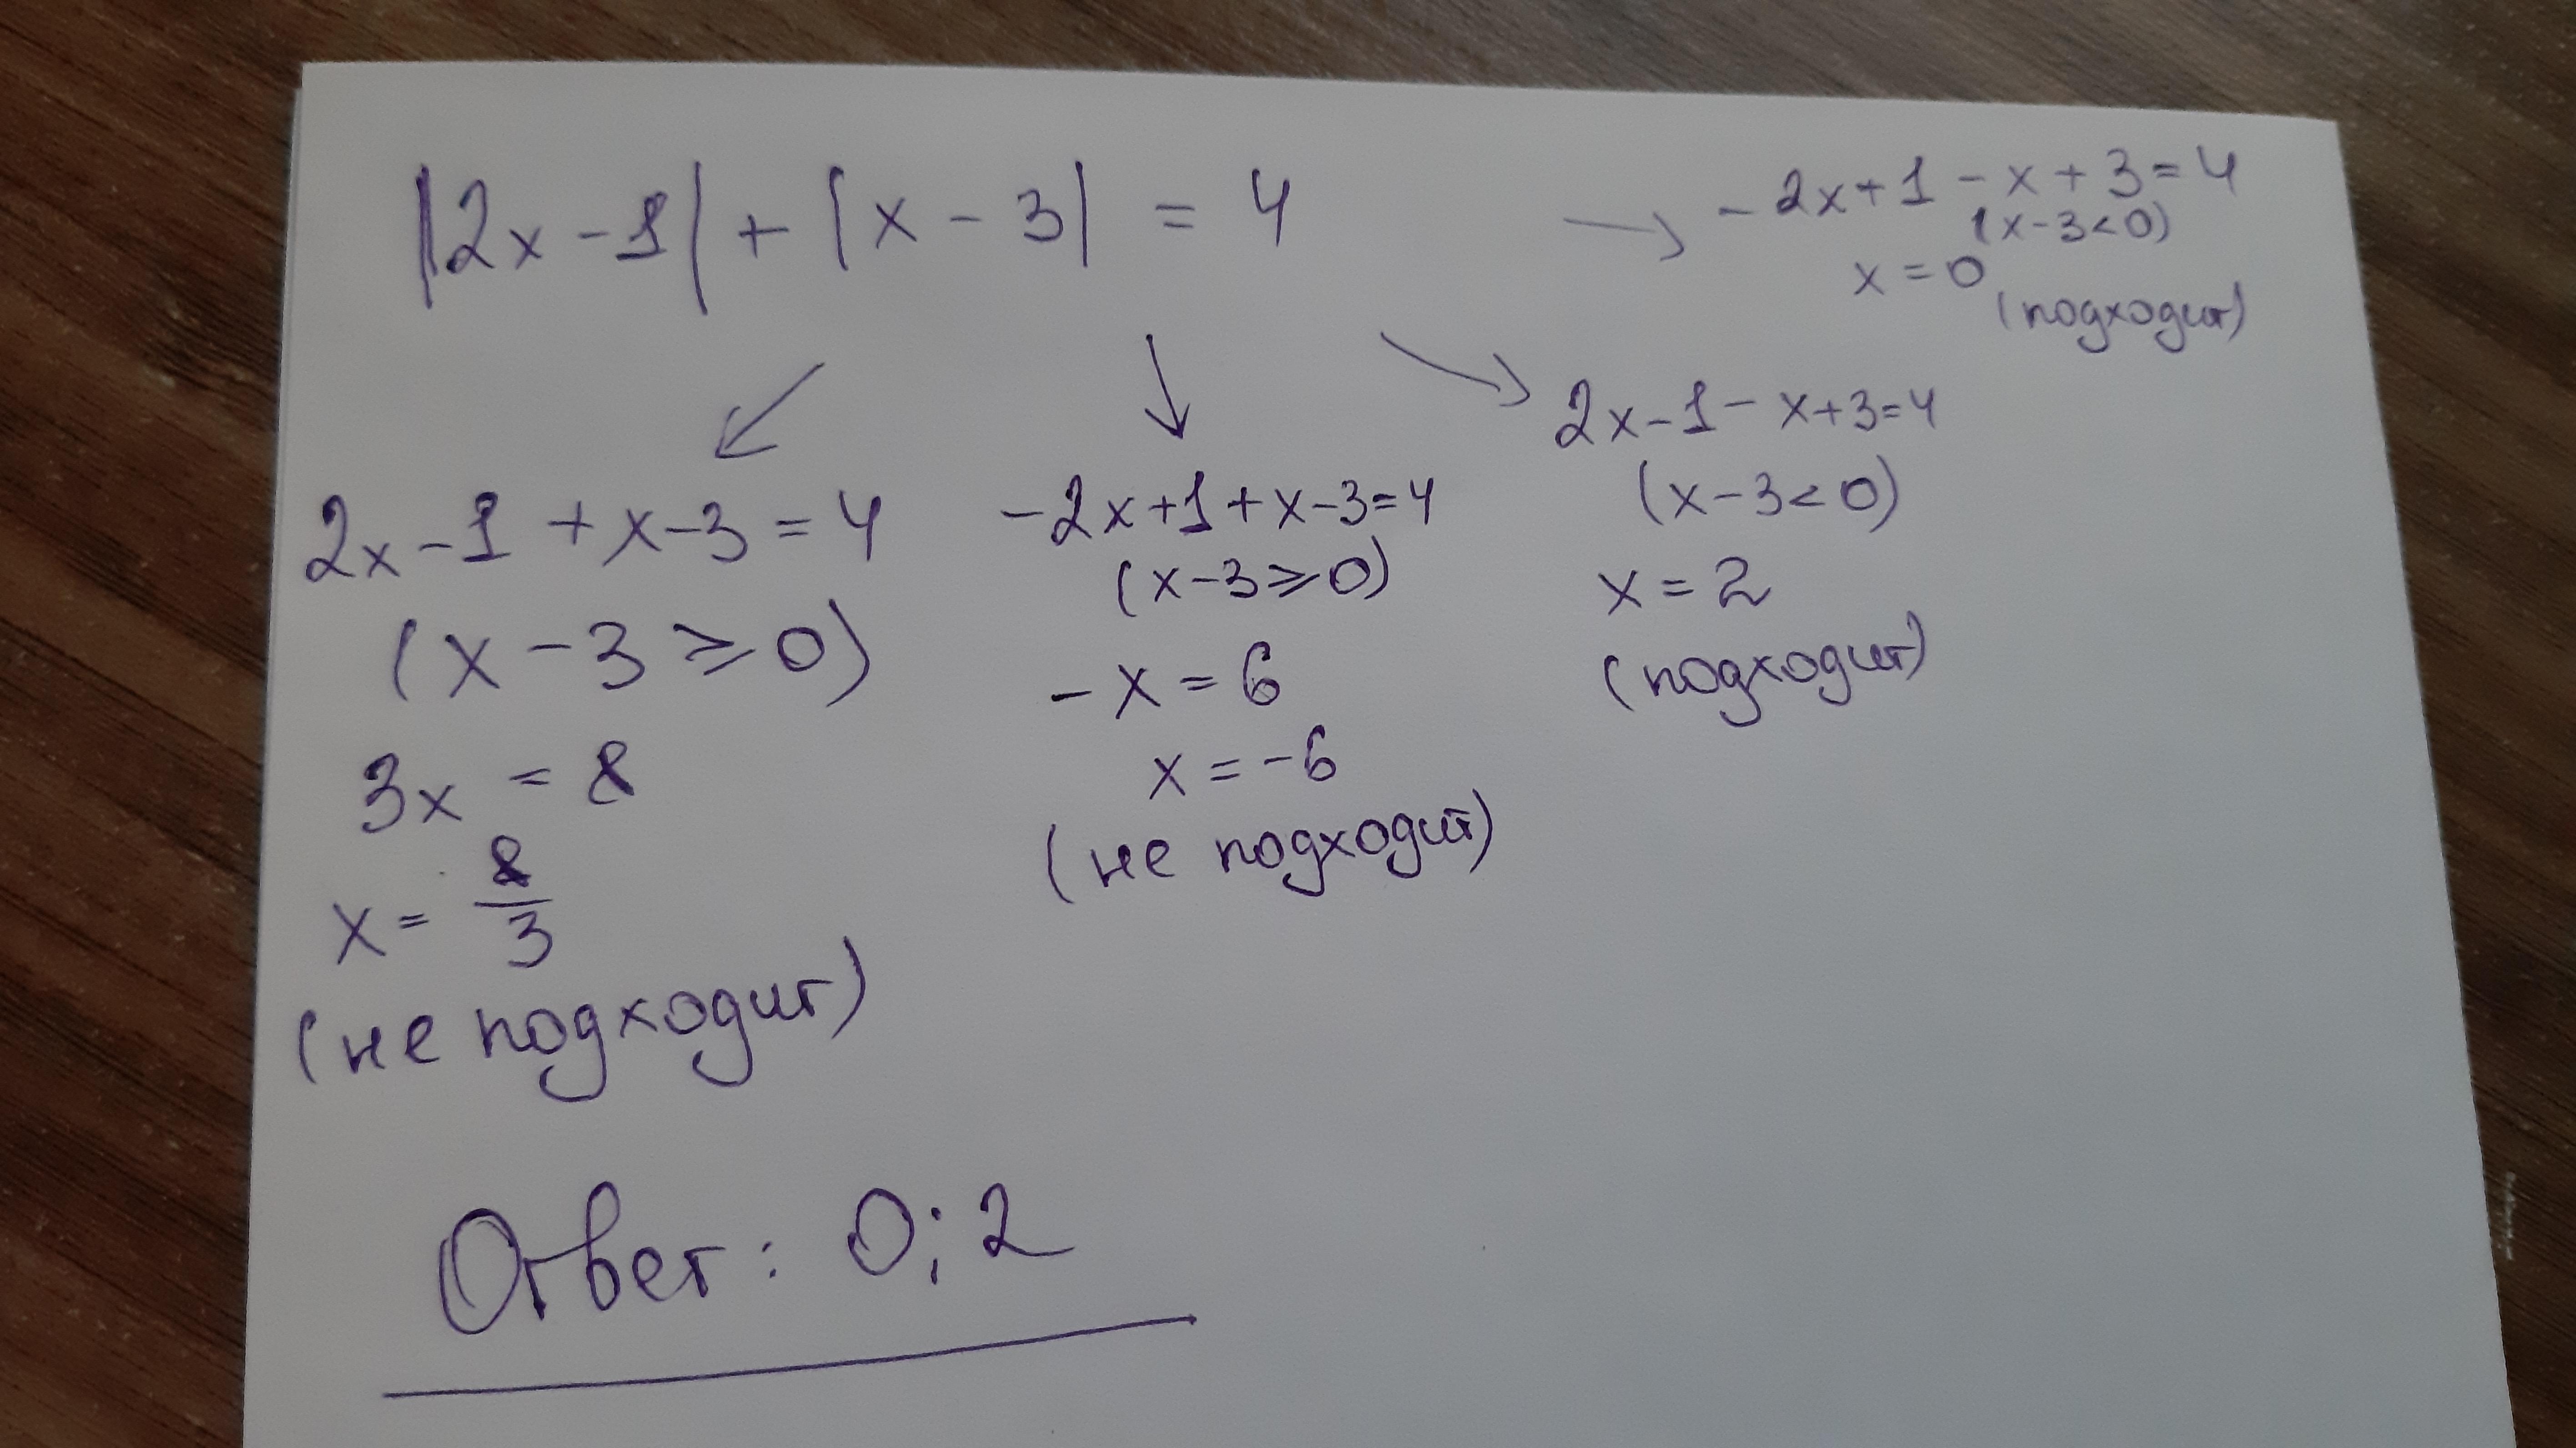 |2x-1| + |x-3| = 4
-2x+1-x+3=4
(x-3<0)
x=0
(подходит)
2x-1-x+3=4
(x-3<0)
x=2
(подходит)
-2x+1+x-3=4
(x-3≥0)
-x=6
x=-6
(не подходит)
2x-1+x-3=4
(x-3≥0)
3x=8
x=8/3
(не подходит)
Ответ: 0;2